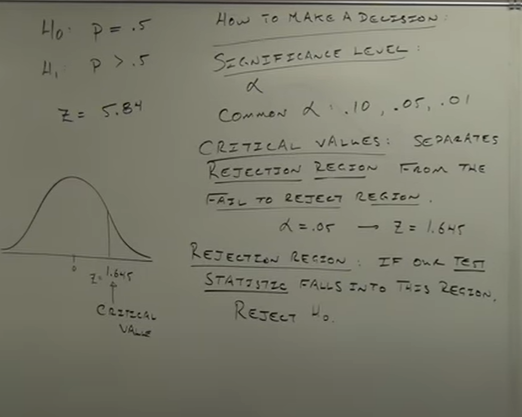 H₀: P = .5
H₁: P > .5
Z = 5.84
0
Z=1.645
CRITICAL
VALUE
HOW TO MAKE A DECISION:
SIGNIFICANCE LEVEL:
α
COMMON α: .10, .05, .01
CRITICAL VALUES: SEPARATES
REJECTION REGION FROM THE
FAIL TO REJECT REGION.
α = .05 → Z = 1.645
REJECTION REGION: IF OUR TEST
STATISTIC FALLS INTO THIS REGION,
REJECT H₀.